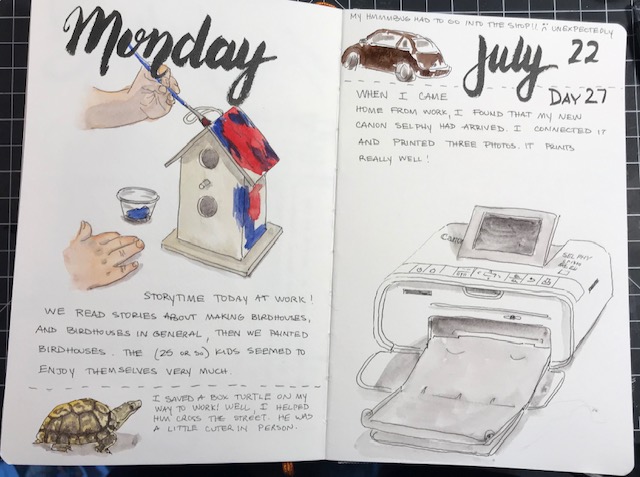 Monday
STORYTIME TODAY AT WORK!
WE READ STORIES ABOUT MAKING BIRDHOUSES,
AND BIRDHOUSES IN GENERAL, THEN WE PAINTED
BIRDHOUSES. THE (25 OR SO) KIDS SEEMED TO
ENJOY THEMSELVES VERY MUCH.
I SAVED A BOX TURTLE ON MY
WAY TO WORK! WELL, I HELPED
HIM CROSS THE STREET. HE WAS
A LITTLE CUTER IN PERSON.
MY HMMMBUG HAD TO GO INTO THE SHOP!! UNEXPECTEDLY
July 22
DAY 27
WHEN I CAME
HOME FROM WORK, I FOUND THAT MY NEW
CANON SELPHY HAD ARRIVED. I CONNECTED IT
AND PRINTED THREE PHOTOS. IT PRINTS
REALLY WELL!
Canon
SELPHY